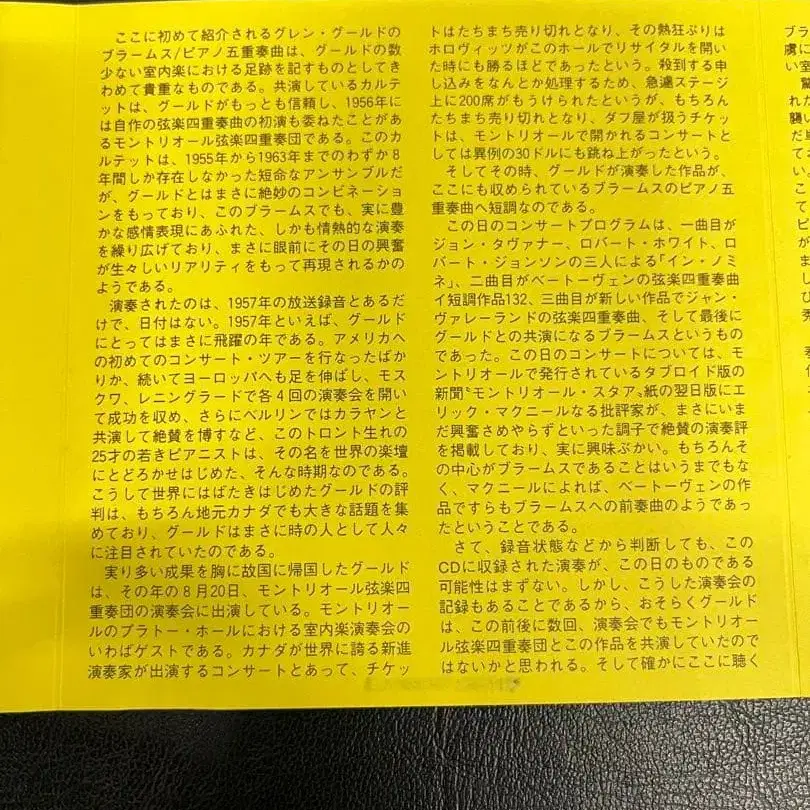 ここに初めて紹介されるグレン・グールドの
ブラームス/ピアノ五重奏曲は、グールドの数
少ない室内楽における足跡を記すものとしてき
わめて貴重なものである。共演しているカルテ
ットは、グールドがもっとも信頼し、1956年に
は自作の弦楽四重奏曲の初演も委ねたことがあ
るモントリオール弦楽四重奏団である。このカ
ルテットは、1955年から1963年までのわずか8
年間しか存在しなかった短命なアンサンブルだ
が、グールドとはまさに絶妙のコンビネーショ
ンをもっており、このブラームスでも、実に豊
かな感情表現にあふれた、しかも情熱的な演奏
を繰り広げており、まさに眼前にその日の興奮
が生々しいリアリティをもって再現されるかの
ようである。
演奏されたのは、1957年の放送録音とあるだ
けで、日付はない。1957年といえば、グールド
にとってはまさに飛躍の年である。アメリカへ
の初めてのコンサート・ツアーを行なったばか
りか、続いてヨーロッパへも足を伸ばし、モス
クワ、レニングラードで各4回の演奏会を開い
て成功を収め、さらにベルリンではカラヤンと
共演して絶賛を博すなど、このトロント生れの
25才の若きピアニストは、その名を世界の楽壇
にとどろかせはじめた、そんな時期なのである。
こうして世界にはばたきはじめたグールドの評
判は、もちろん地元カナダでも大きな話題を集
めており、グールドはまさに時の人として人々
に注目されていたのである。
実り多い成果を胸に故国に帰国したグールド
は、その年の8月20日、モントリオール弦楽四
重奏団の演奏会に出演している。モントリオー
ルのプラトー・ホールにおける室内楽演奏会の
いわばゲストである。カナダが世界に誇る新進
演奏家が出演するコンサートとあって、チケッ
トはたちまち売り切れとなり、その熱狂ぶりは
ホロヴィッツがこのホールでリサイタルを開い
た時にも勝るほどであったという。殺到する申
し込みをなんとか処理するため、急遽ステージ
上に200席がもうけられたというが、もちろん
たちまち売り切れとなり、ダフ屋が扱うチケッ
トは、モントリオールで開かれるコンサートと
しては異例の30ドルにも跳ね上がったという。
そしてその時、グールドが演奏した作品が、
ここにも収められているブラームスのピアノ五
重奏曲ヘ短調なのである。
この日のコンサートプログラムは、一曲目が
ジョン・タヴァナー、ロバート・ホワイト、ロ
バート・ジョンソンの三人による「イン・ノミ
ネ」、二曲目がベートーヴェンの弦楽四重奏曲
イ短調作品132、三曲目が新しい作品でジャン・
ヴァレーランドの弦楽四重奏曲、そして最後に
グールドとの共演になるブラームスというもの
であった。この日のコンサートについては、モ
ントリオールで発行されているタブロイド版の
新聞〝モントリオール・スタア〟紙の翌日版にエ
リック・マクニールなる批評家が、まさにいま
だ興奮さめやらずといった調子で絶賛の演奏評
を掲載しており、実に興味ぶかい。もちろんそ
の中心がブラームスであることはいうまでもな
く、マクニールによれば、ベートーヴェンの作
品ですらもブラームスへの前奏曲のようであっ
たということである。
さて、録音状態などから判断しても、この
CDに収録された演奏が、この日のものである
可能性はまずない。しかし、こうした演奏会の
記録もあることであるから、おそらくグールド
は、この前後に数回、演奏会でもモントリオー
ル弦楽四重奏団とこの作品を共演していたので
はないかと思われる。そして確かにここに聴く